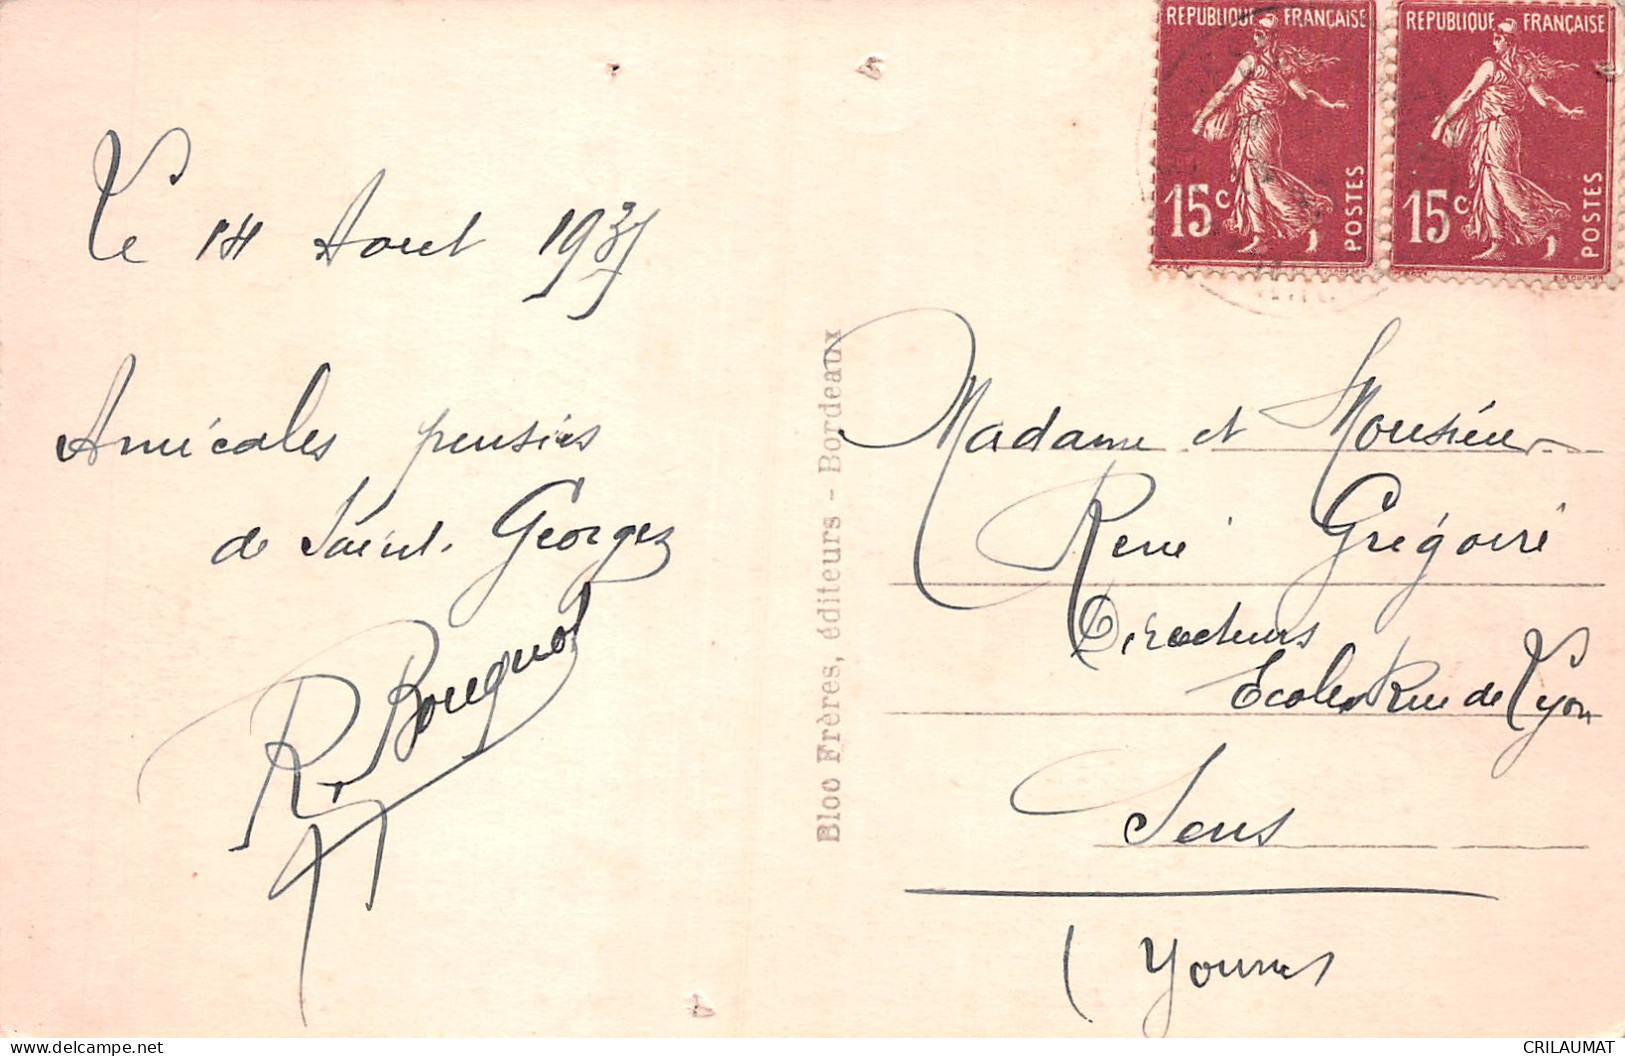 Le 14 Aout 193
Amicales pensées
de Saint-Georges
R. Bougnol
Bloc Frères, éditeurs - Bordeaux
REPUBLIQUE FRANÇAISE
15c
POSTES
REPUBLIQUE FRANÇAISE
15c
POSTES
Madame et Monsieur
René Grégoire
Directeurs
Ecoles Rue de Lyon
Sens
(Yonne)
CRILAUMAT